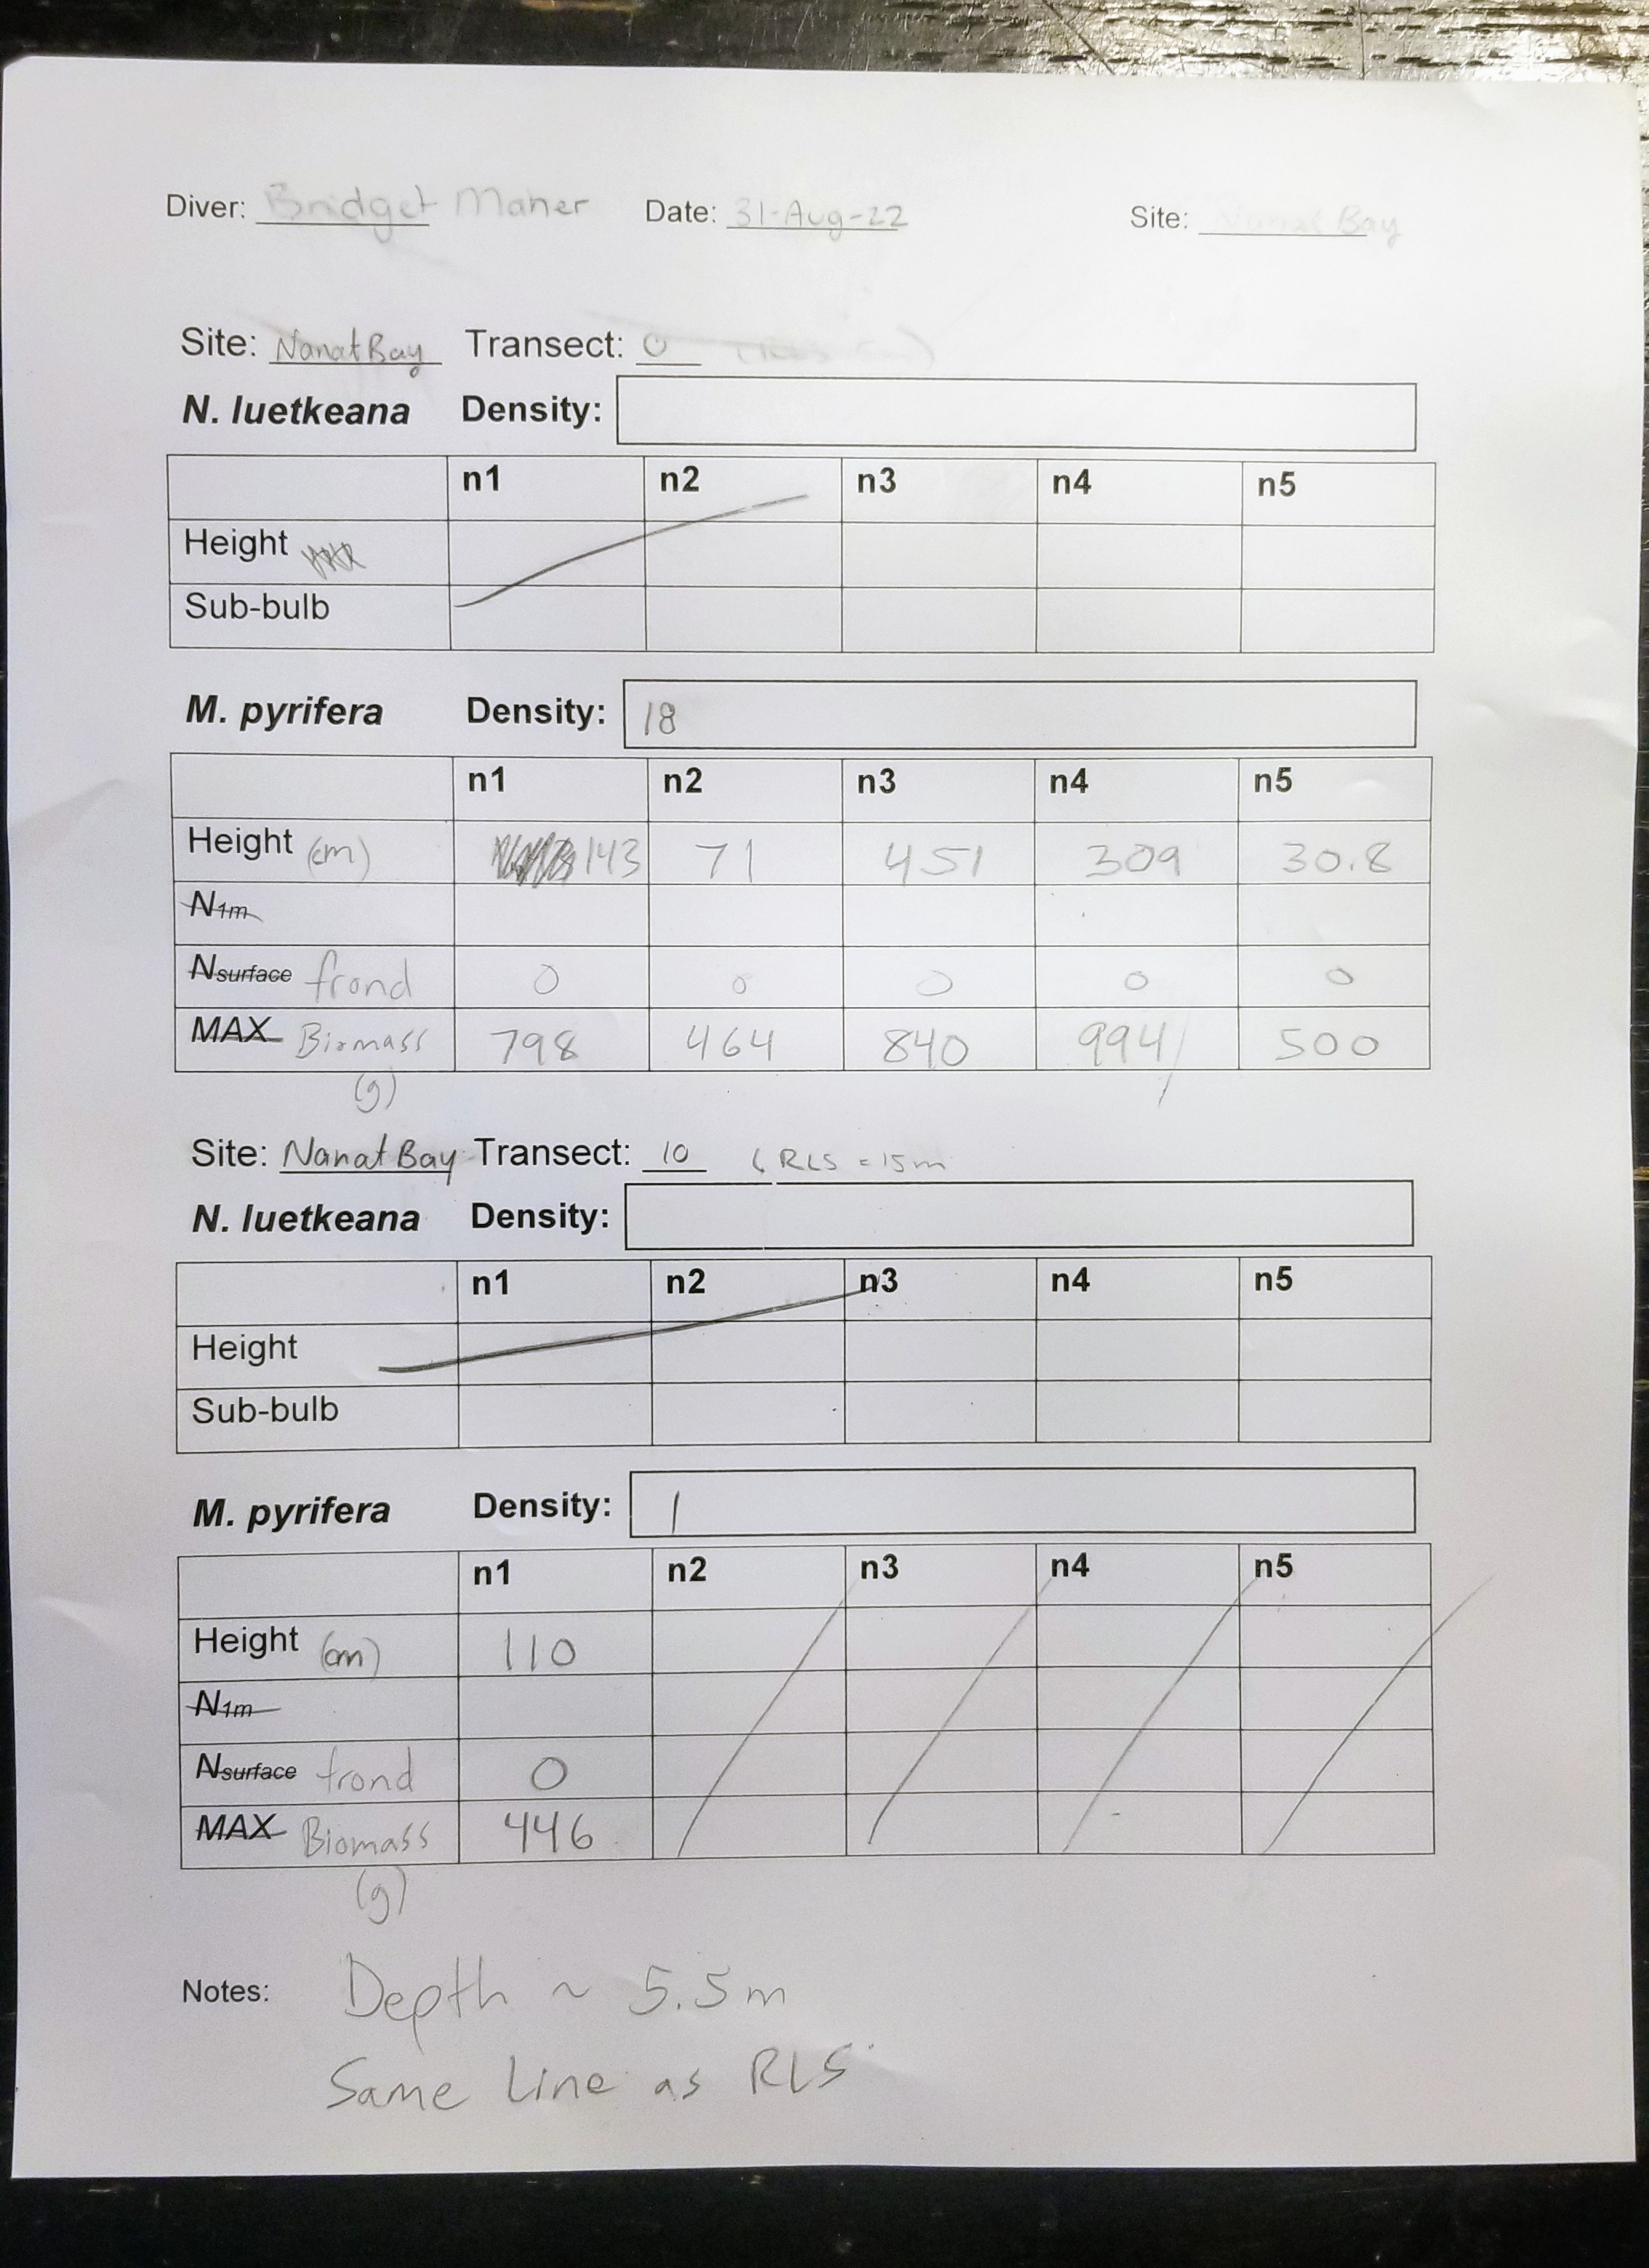 Diver: Bridget Maher Date: 31-Aug-22 Site: Nanat Bay
Site: Nanat Bay Transect: 0 (RLS 5m)
N. luetkeana Density:
n1 n2 n3 n4 n5
Height
Sub-bulb
M. pyrifera Density: 18
n1 n2 n3 n4 n5
Height (cm) 143 71 451 309 30.8
N1m
Nsurface frond 0 0 0 0 0
MAX Biomass 798 464 840 994 500
(g)
Site: Nanat Bay Transect: 10 (RLS = 15m
N. luetkeana Density:
n1 n2 n3 n4 n5
Height
Sub-bulb
M. pyrifera Density: 1
n1 n2 n3 n4 n5
Height (cm) 110
N1m
Nsurface frond 0
MAX Biomass 446
(g)
Notes: Depth ~ 5.5m
Same Line as RLS